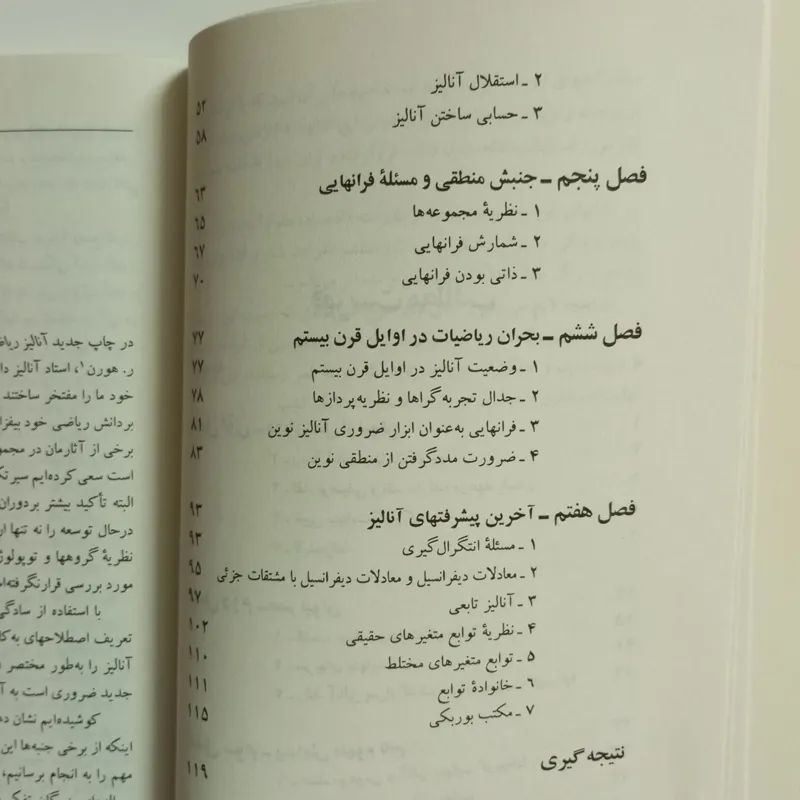 ۲ ـ استقلال آنالیز ۵۲
۳ ـ حسابی ساختن آنالیز ۵۸
فصل پنجم ـ جنبش منطقی و مسئلهٔ فرانهایی ۶۳
۱ ـ نظریهٔ مجموعه‌ها ۶۵
۲ ـ شمارش فرانهایی ۶۷
۳ ـ ذاتی بودن فرانهایی ۷۰
فصل ششم ـ بحران ریاضیات در اوایل قرن بیستم ۷۷
۱ ـ وضعیت آنالیز در اوایل قرن بیستم ۷۷
۲ ـ جدال تجربه‌گراها و نظریه‌پردازها ۷۸
۳ ـ فرانهایی به‌عنوان ابزار ضروری آنالیز نوین ۸۱
۴ ـ ضرورت مددگرفتن از منطقی نوین ۸۳
فصل هفتم ـ آخرین پیشرفتهای آنالیز ۹۳
۱ ـ مسئلهٔ انتگرال‌گیری ۹۳
۲ ـ معادلات دیفرانسیل و معادلات دیفرانسیل با مشتقات جزئی ۹۵
۳ ـ آنالیز تابعی ۹۷
۴ ـ نظریهٔ توابع متغیرهای حقیقی ۱۰۲
۵ ـ توابع متغیرهای مختلط ۱۱۰
۶ ـ خانوادهٔ توابع ۱۱۱
۷ ـ مکتب بوربکی ۱۱۵
نتیجه‌گیری ۱۱۹
در چاپ جدید آنالیز
ر. هورن۱، استاد آنالیز
خود ما را مفتخر ساختند
بردانش ریاضی خود
برخی از آثارمان در
است سعی کرده‌ایم
البته تأکید بیشتر بردوران
درحال توسعه را نه تنها
نظریهٔ گروهها و
مورد بررسی
با استفاده از
تعریف اصطلاحهای
آنالیز را به‌طور مختصر
جدید ضروری است به
کوشیده‌ایم نشان
اینکه از برخی جنبه‌ها این
مهم را به انجام برسانیم،